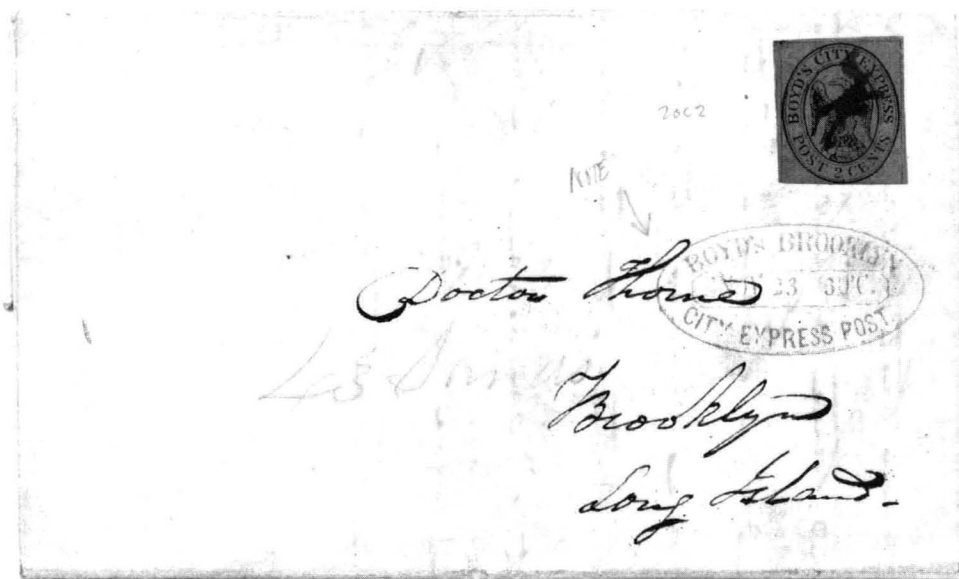 BOYD'S CITY EXPRESS
POST 2 CENTS
20C2
NOTE
BOYD'S BROOKLYN
23 3 O'C.
CITY EXPRESS POST.
Doctor Thorne
Brooklyn
Long Island.